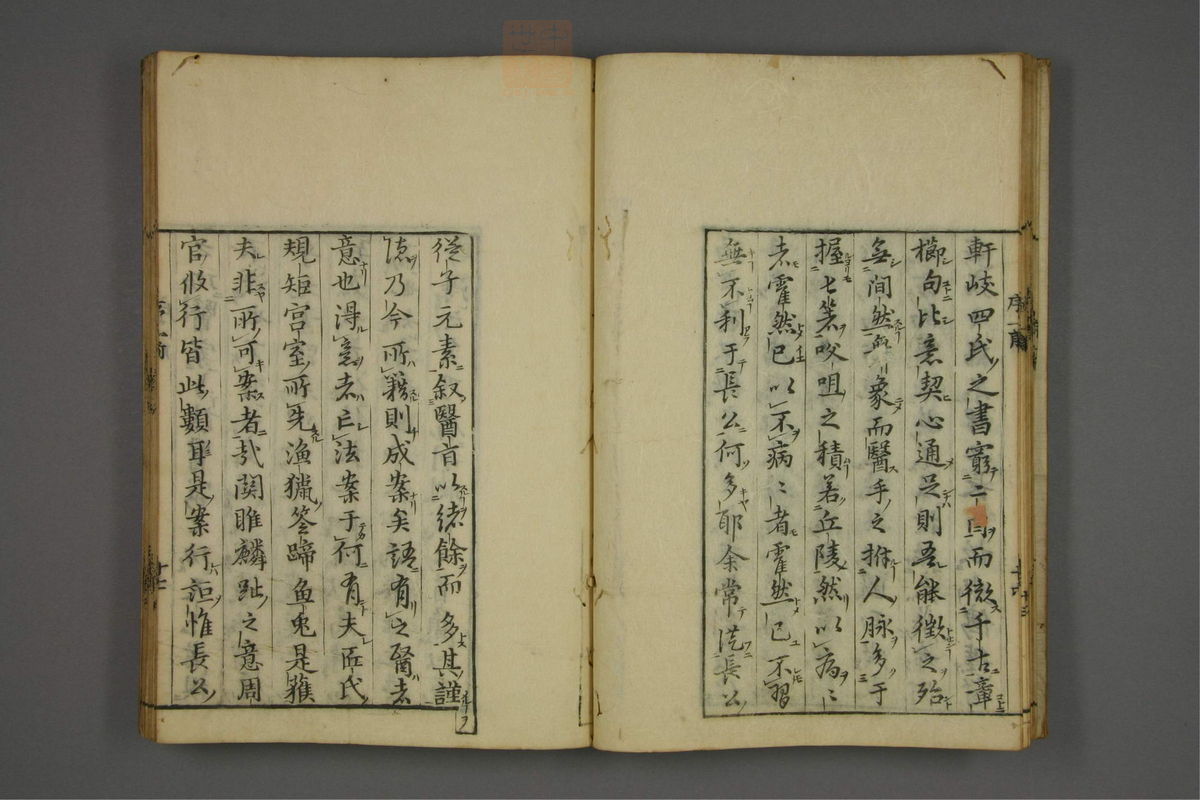 軒岐四氏之書竆二酉而徴千古章
櫛句比意契心通足則吾能徴之殆
無間然無象而醫手之推人脉多于
握七業㕮咀之積若丘陵然以病〻
者霍然已以不病〻者霍然已不習
無不利于長公何多耶余常從長公
從子元素叙醫首以緒餘而多其謹
慮乃今所籍則成案矣語有之醫者
意也得意者亡法案于何有夫匠氏
規矩宮室所先漁獵筌蹄魚兎是羅
夫非所可案者哉関雎麟趾之意周
官攸行皆此類耶是案行詎惟長公